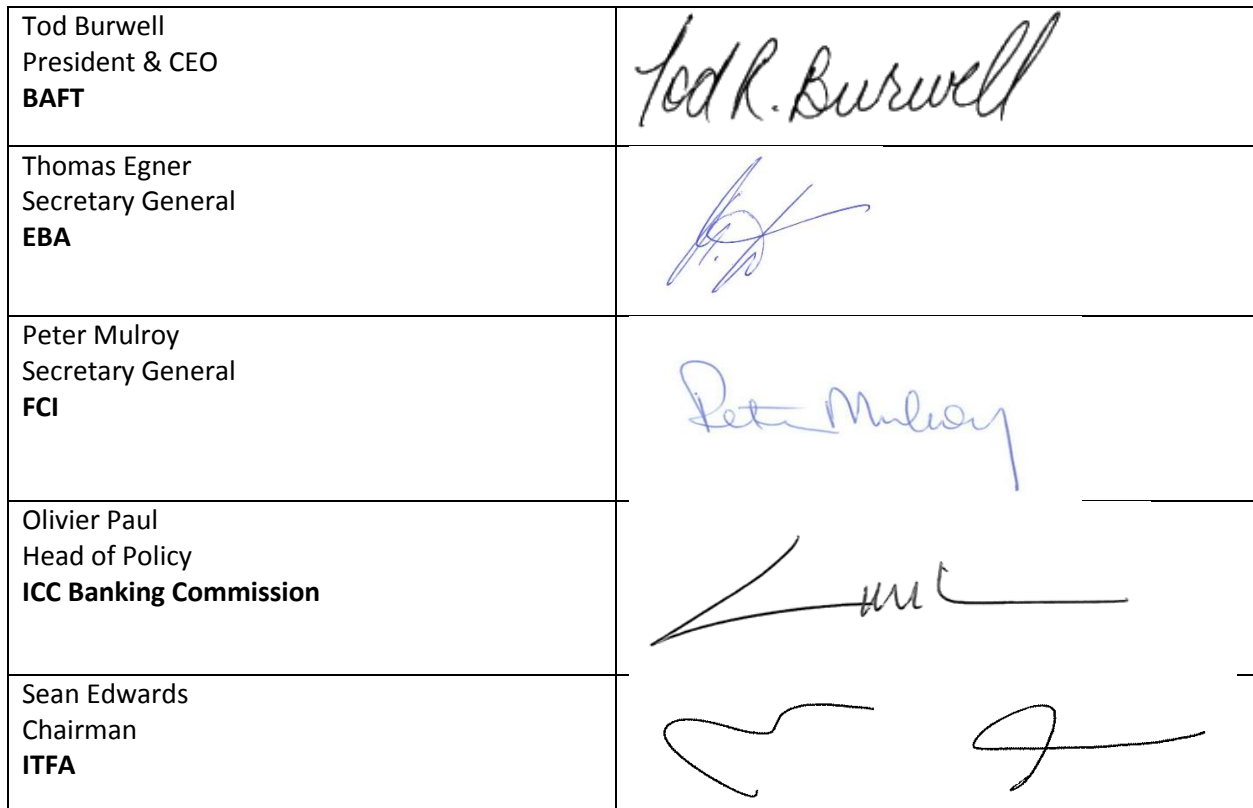 Tod Burwell
President & CEO
BAFT
Tod R. Burwell
Thomas Egner
Secretary General
EBA
Peter Mulroy
Secretary General
FCI
Peter Mulroy
Olivier Paul
Head of Policy
ICC Banking Commission
Sean Edwards
Chairman
ITFA